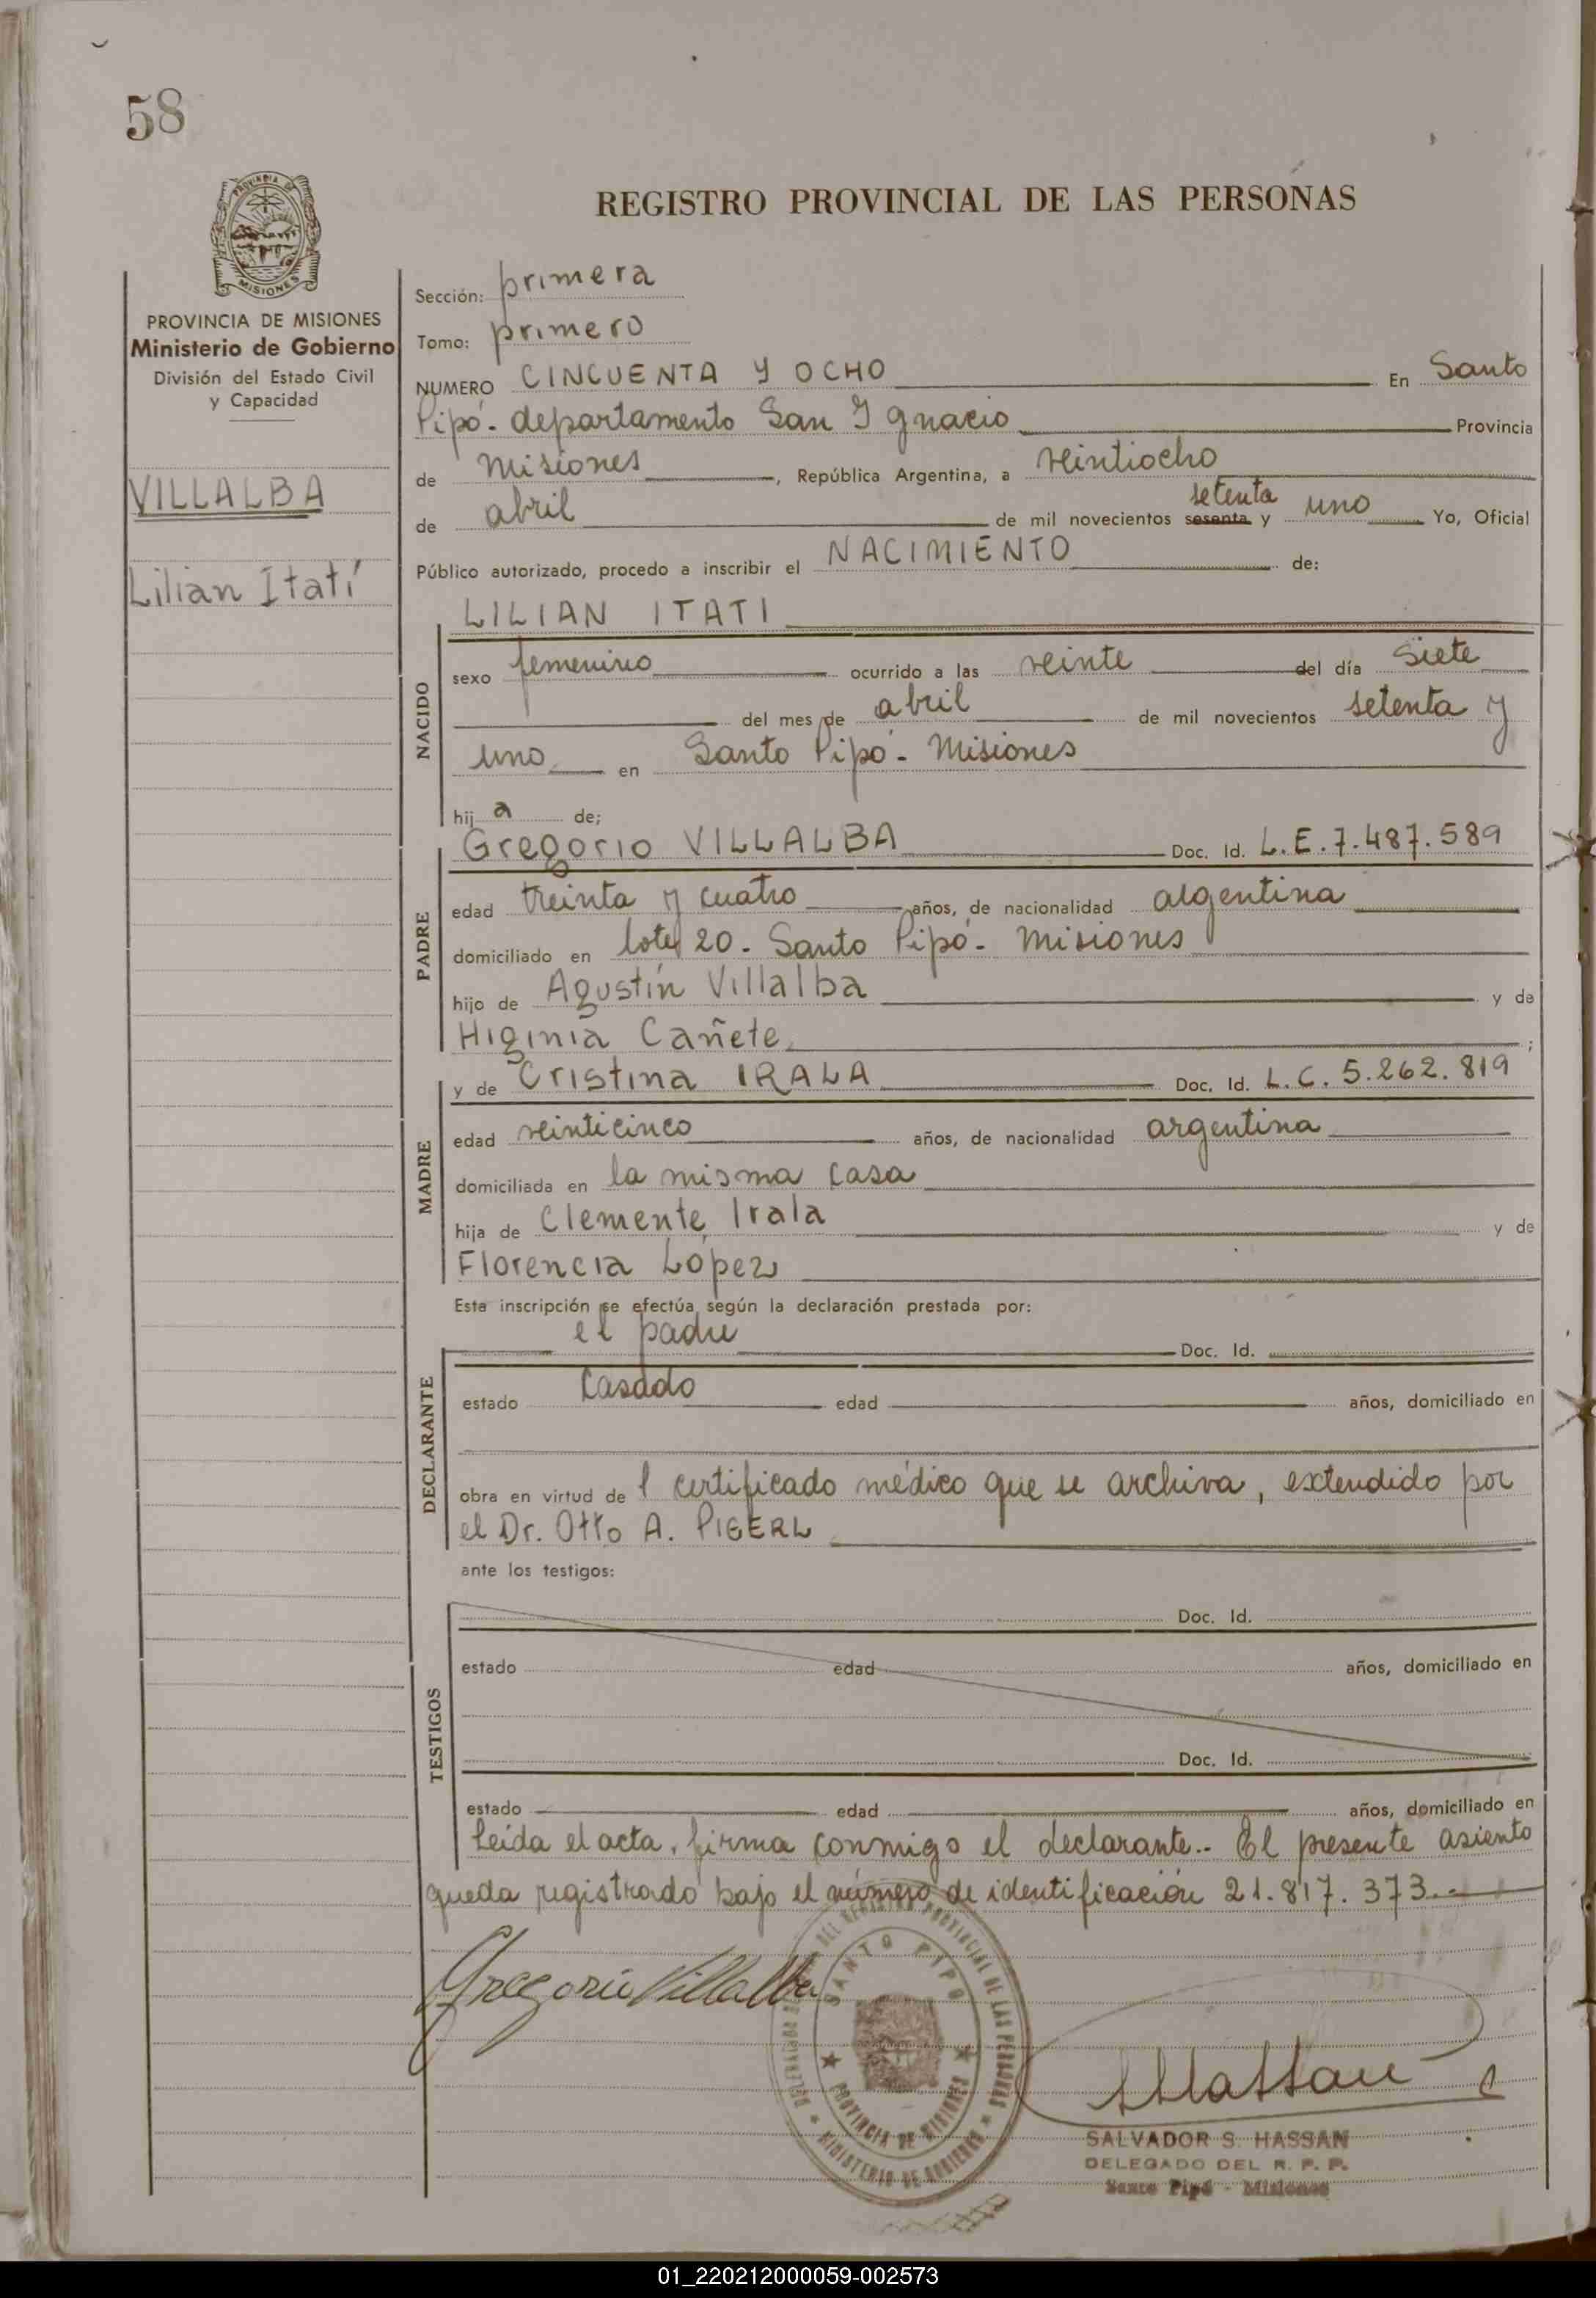 58
PROVINCIA DE
MISIONES
REGISTRO PROVINCIAL DE LAS PERSONAS
PROVINCIA DE MISIONES
Ministerio de Gobierno
División del Estado Civil
y Capacidad
VILLALBA
Lilian Itatí
Sección: primera
Tomo: primero
NUMERO CINCUENTA Y OCHO En Santo
Pipó.- departamento San Ignacio Provincia
de Misiones, República Argentina, a veintiocho
de abril de mil novecientos sesenta setenta y uno Yo, Oficial
Público autorizado, procedo a inscribir el NACIMIENTO de:
LILIAN ITATI
NACIDO
sexo femenino ocurrido a las veinte del día siete
del mes de abril de mil novecientos setenta y
uno en Santo Pipó - Misiones
hij a de;
PADRE
Gregorio VILLALBA Doc. Id. L.E. 7.487.589
edad treinta y cuatro años, de nacionalidad argentina
domiciliado en lote 20 - Santo Pipó - Misiones
hijo de Agustín Villalba y de
Higinia Cañete ;
MADRE
y de Cristina IRALA Doc. Id. L.C. 5.262.819
edad veinticinco años, de nacionalidad argentina
domiciliada en la misma casa
hija de Clemente Irala y de
Florencia López
Esta inscripción se efectúa según la declaración prestada por:
DECLARANTE
el padre Doc. Id.
estado casado edad años, domiciliado en
obra en virtud de l certificado médico que se archiva, extendido por
el Dr. Otto A. PIGERL
ante los testigos:
TESTIGOS
Doc. Id.
estado edad años, domiciliado en
Doc. Id.
estado edad años, domiciliado en
Leída el acta, firma conmigo el declarante.- El presente asiento
queda registrado bajo el número de identificación 21.817.373.-
Gregorio Villalba
DEL REGISTRO PROVINCIAL DE LAS PERSONAS
SANTO PIPO
PROVINCIA DE MISIONES
MINISTERIO DE GOBIERNO
SALVADOR S. HASSAN
DELEGADO DEL R. P. P.
Santo Pipó - Misiones
01_220212000059-002573